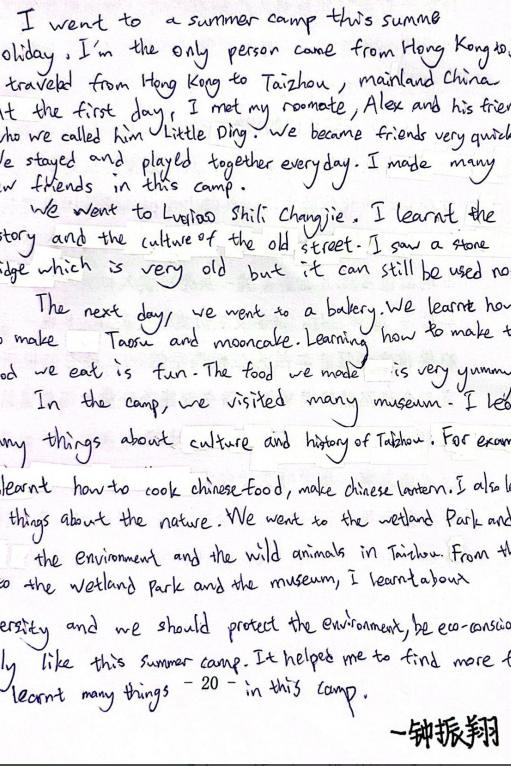 I went to a summer camp this summe
oliday. I'm the only person came from Hong Kong to.
traveled from Hong Kong to Taizhou, mainland China
t the first day, I met my roomate, Alex and his frien
ho we called him Little Ding. We became friends very quick
e stayed and played together everyday. I made many
w friends in this camp.
We went to Luqiao Shili Changjie. I learnt the
story and the culture of the old street. I saw a stone
idge which is very old but it can still be used no
The next day, we went to a bakery. We learnt how
o make Taosu and mooncake. Learning how to make t
od we eat is fun. The food we made is very yummy
In the camp, we visited many museum. I lea
any things about culture and history of Taizhou. For exam
learnt how to cook chinese food, make chinese lantern. I also l
things about the nature. We went to the wetland Park and
the environment and the wild animals in Taizhou. From th
to the wetland park and the museum, I learnt about
ersity and we should protect the environment, be eco-conscio
ly like this summer camp. It helped me to find more f
learnt many things - 20 - in this camp.
一钟振翔